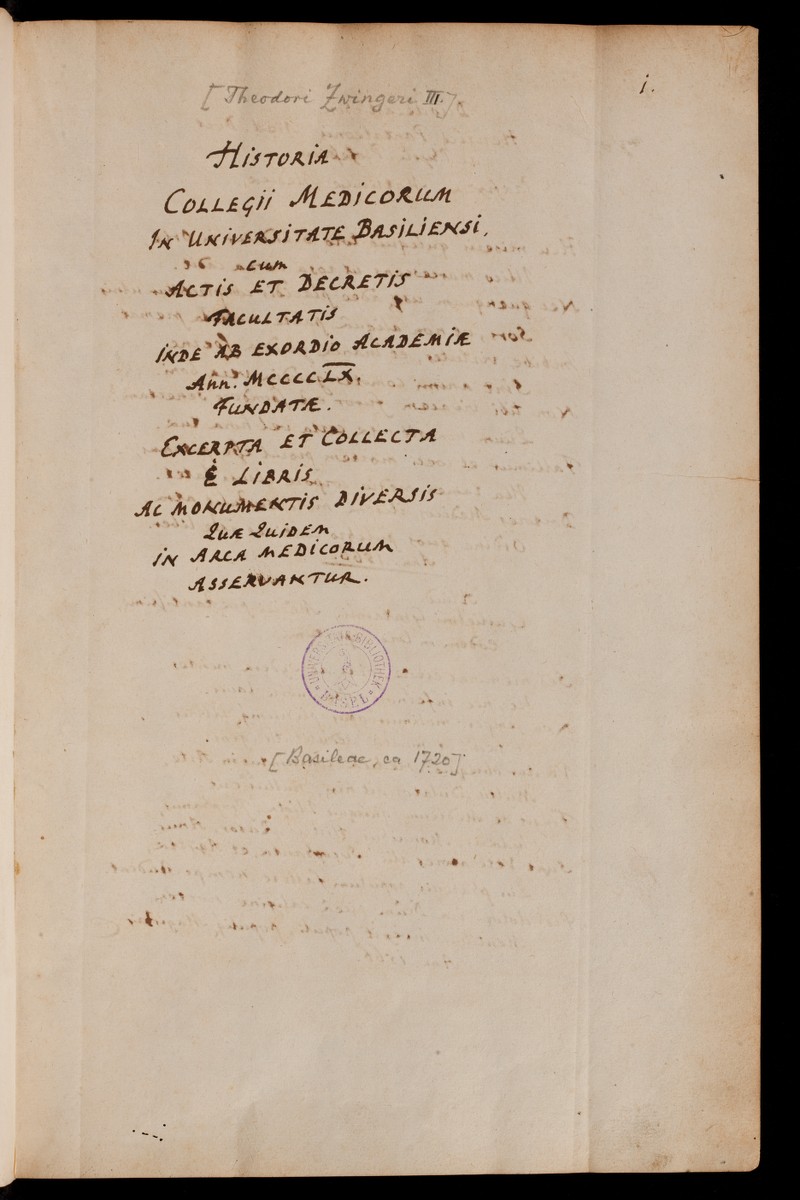 [Theodori Zwingeri III.].
1.
HISTORIA
COLLEGII MEDICORUM
IN UNIVERSITATE BASILIENSI,
CUM
ACTIS ET DECRETIS
FACULTATIS
INDE AB EXORDIO ACADEMIÆ
Ann. MCCCCLX.
FUNDATÆ.
EXCERPTA ET COLLECTA
È LIBRIS
AC MONUMENTIS DIVERSIS
QUÆ QUIDEM
IN ARCA MEDICORUM
ASSERVANTUR.
UNIVERSITÄTS-BIBLIOTHEK
* BASEL *
[Basileae, ca 1720]